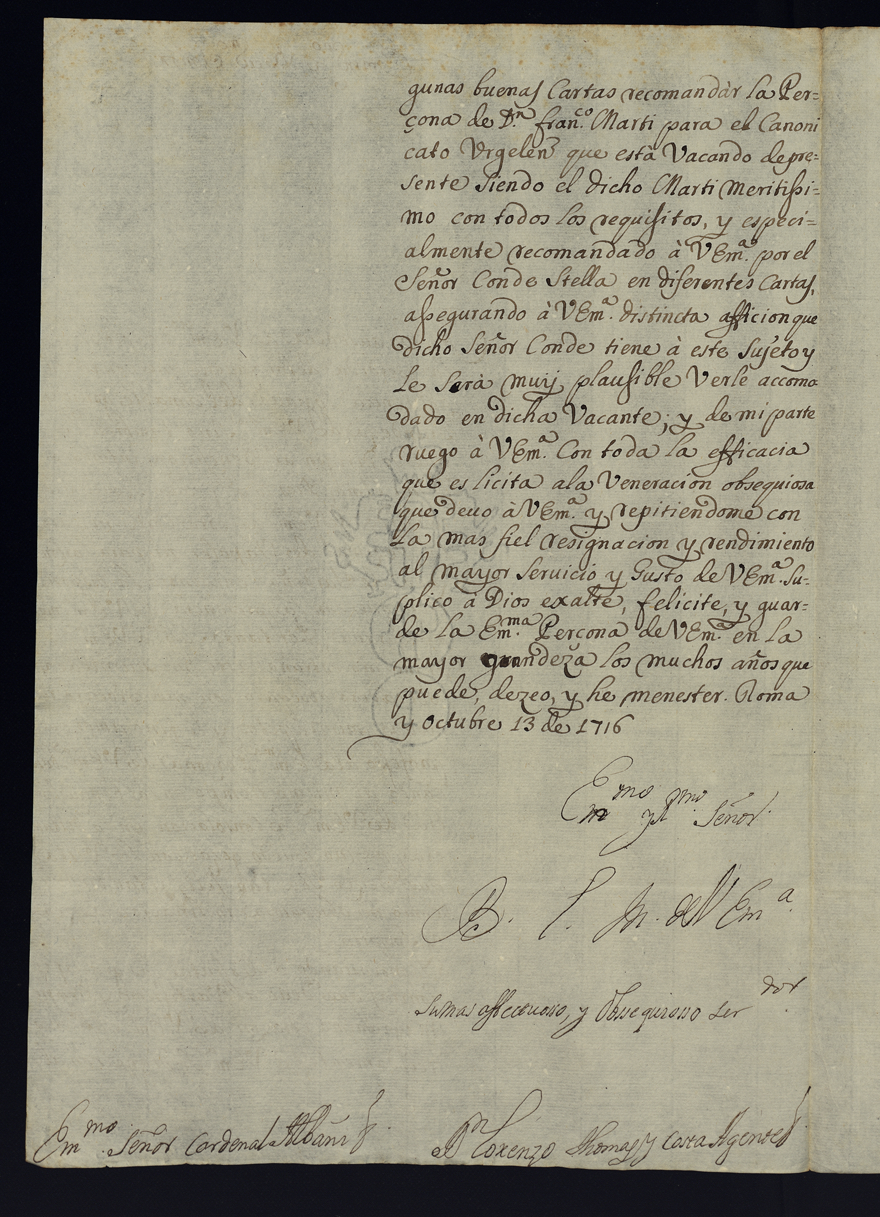 gunas buenas Cartas recomandàr la Per=
çona de D.n Fran.co Marti para el Canoni
cato Vrgelen que està Vacando depre=
sente siendo el dicho Marti meritissi=
mo con todos los requisitos, y especi=
almente recomandado à VEm.a por el
Señor Conde Stella en diferentes Cartas,
assegurando à VEm.a distincta afficion que
dicho Señor Conde tiene à este Sujeto y
le serà muÿ plausible Verle accomo
dado en dicha Vacante; y de mi parte
ruego à VEm.a Con toda la efficacia
que es licita ala Veneracion obsequiosa
que deuo à VEm.a y repitiendome con
La mas fiel resignacion y rendimiento
al mayor servicio y Gusto de VEm.a Su=
plico a Dios exalte, felicite, y guar=
de la Em.ma Percona de VEm.a en la
mayor grandeza los muchos años que
puede, dezeo, y he menester. Roma
y Octubre 13 de 1716
Em.mo y R.mo Señor
B. L. M. de VEm.a
su mas affectuoso, y Obsequiosso ser.dor
Em.mo Señor Cardenal Albani
D.n Lorenzo Thomas y Costa Agente